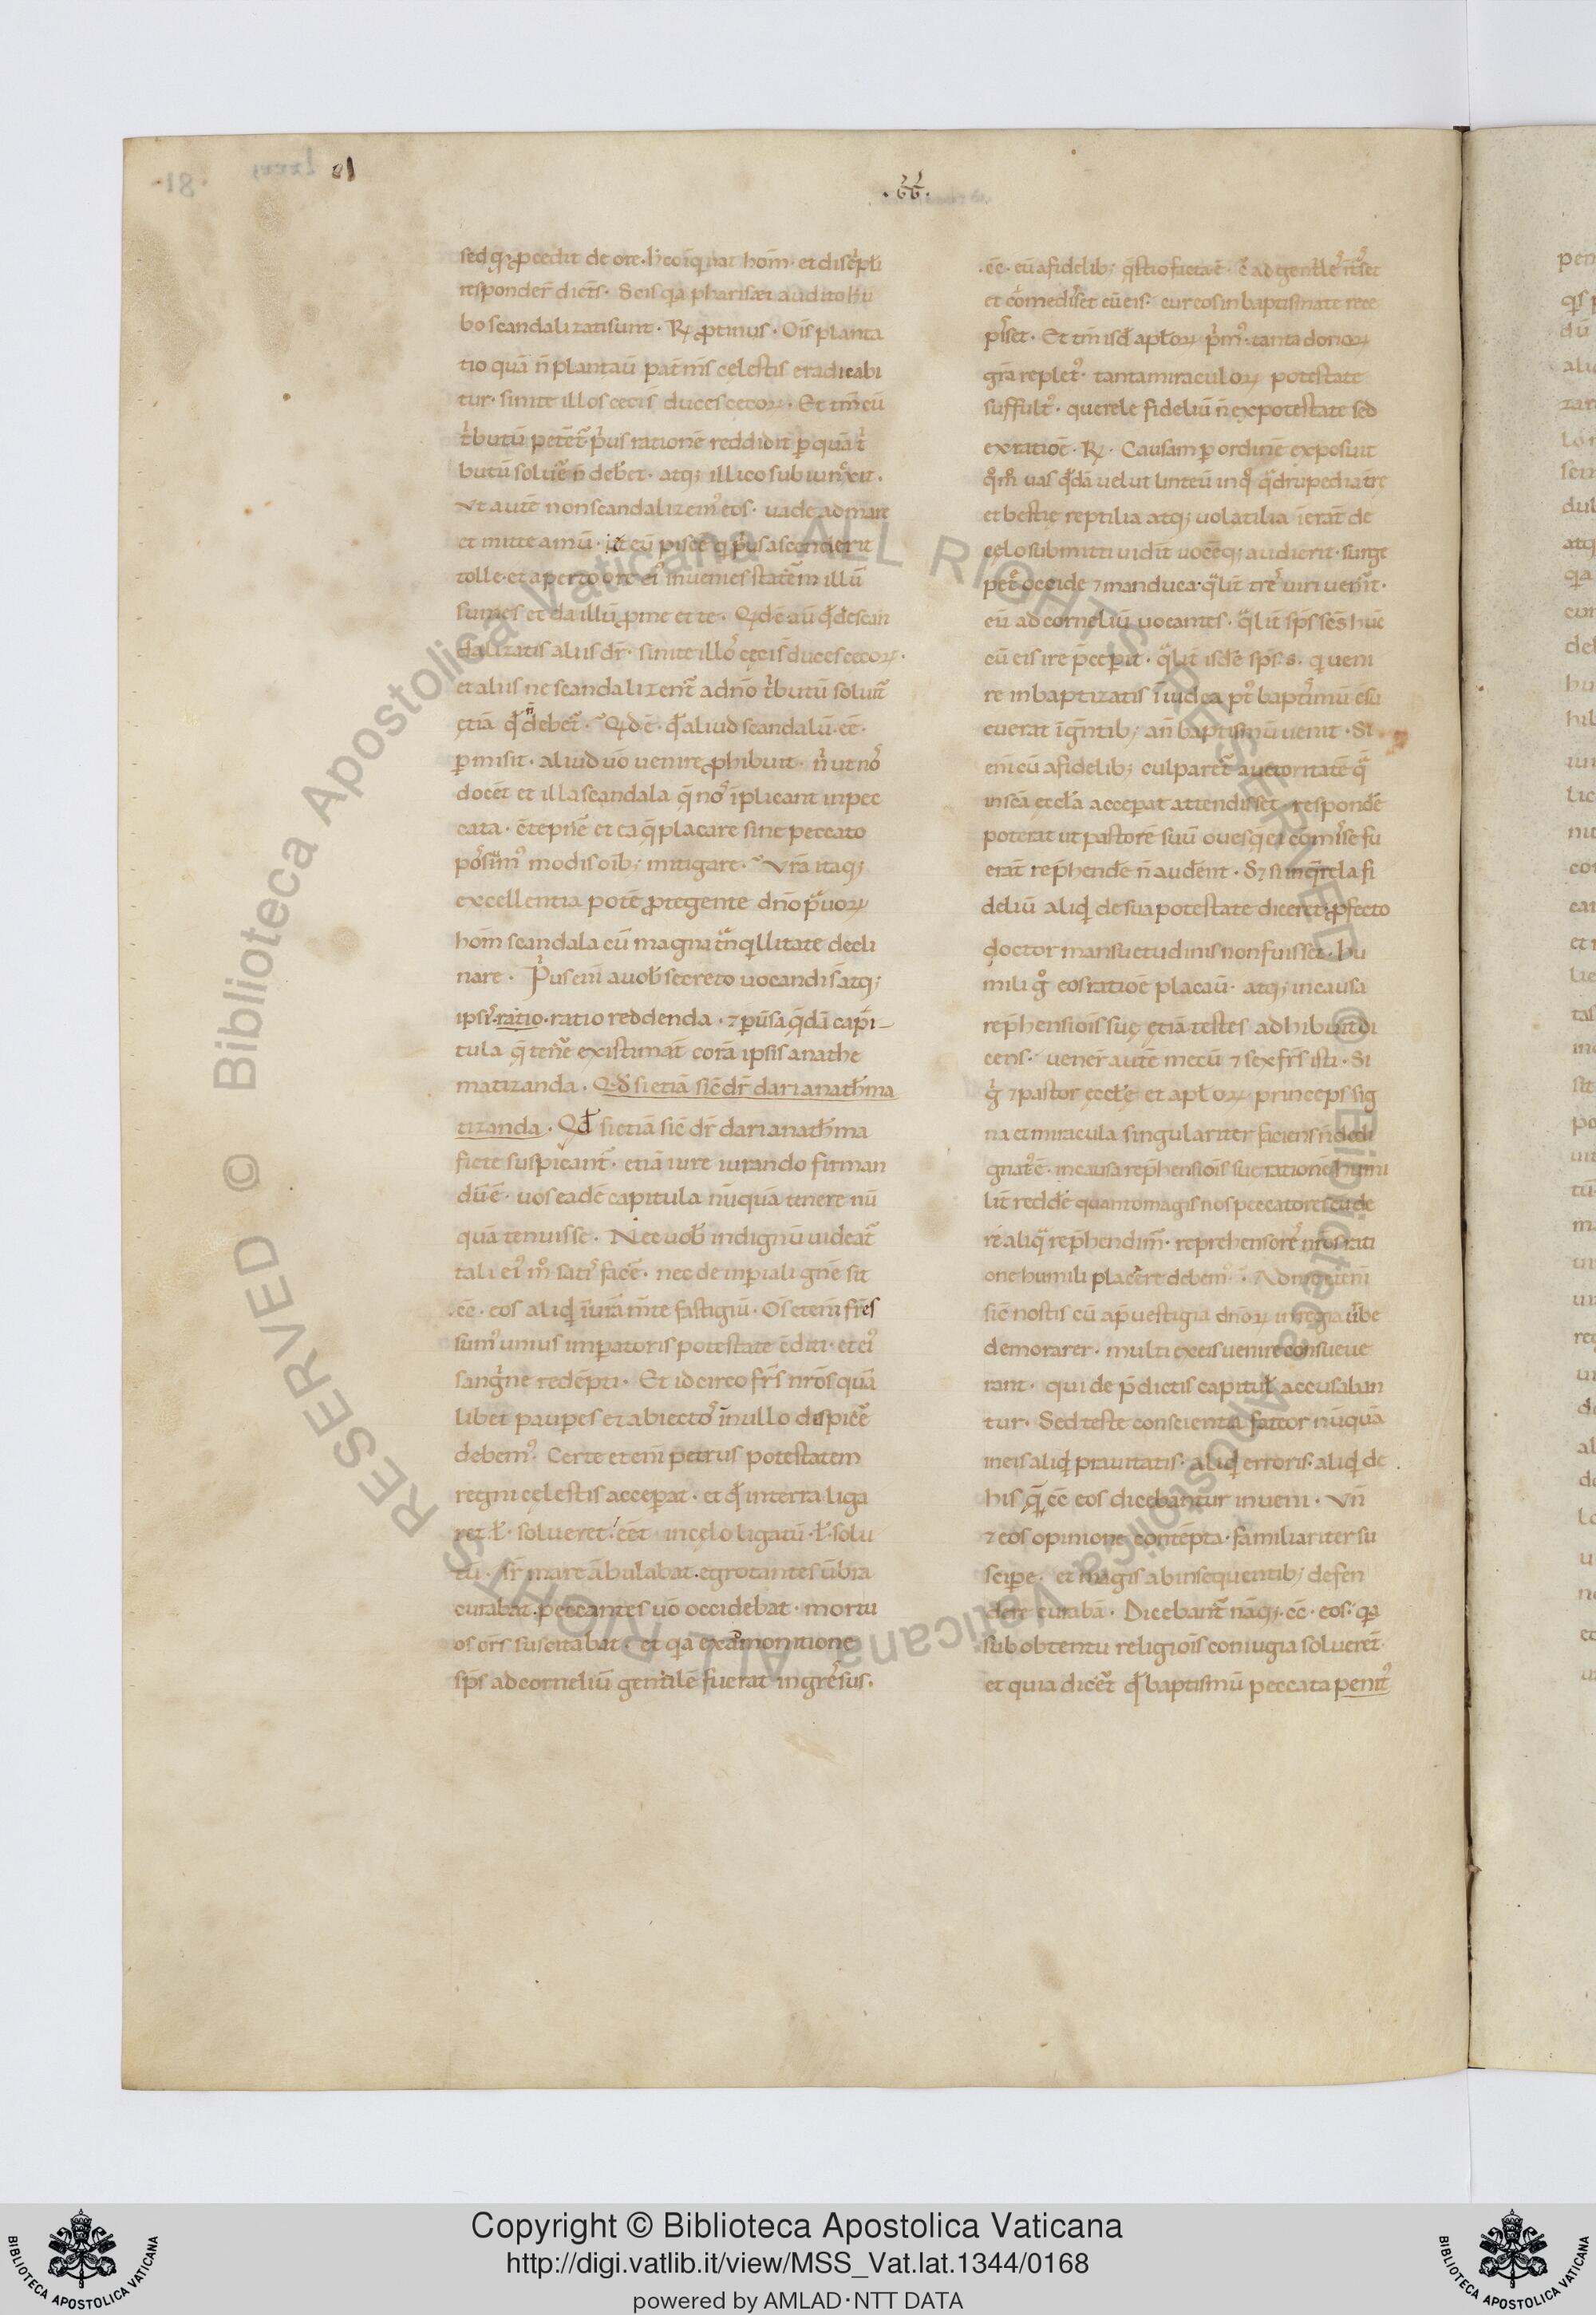 .66.
sed q; ꝓcedit de ore. hͦ coı̄qͥnat hom̄. et discípli
responder̄ dict̄s. Scis qa pharisæi audito hͦ ū
bo scandalizati sunt. R/ ꝓtinus. Oı̄s planta
tio quā n̄ plantau͛ pat̄ m̄s celestis eradicabi
tur. sinite illos ceci s̄ duces cecoꝝ. Et tm̄ cū
tͥbutū petēt᷑ pͥus rationē reddidit ꝑ quā tͥ
butū soluē n̄ deƀet. atq; illico subiunxit.
Vt autē non scandalizem᷒ eos. uade ad mare
et mitte amū. et eū piscē q pͥus ascenderit
tolle. et aperto ore ei᷒ inuenies statēm illū
sumes et da illū ꝓ me et te. Qd ē aū qd de scan
dalizatis aliis dr̄. sinite illos ceci s̄ duces cecoꝝ.
et aliis ne scandalizent᷑ a dn̄o tͥbutū soluit᷑
etiā qd n̄ debet᷑. Qd ē. qd aliud scandalū. eē.
ꝑmisit. aliud uō uenire ꝓhibuit. nͥ ut nos
docēt et illa scandala q̄ nos īplicant in pec
cata. ctēpnē et ea q̄ placare sine peccato
possum᷒ modis oīb; mitigare. Vr̄a itaq;
excellentia potē ꝓtegente dn̄o pͣuoꝝ
hom̄ scandala cū magna tͣnqͥllitate decli
nare. Pͥus eni a uoƀ secreto uocandi s̄ atq;
ipsis. ratio. ratio reddenda. ⁊ puͣsa qͣdā capi
tula q̄ tenē existimant corā ipsis anathe
matizanda. Qd si etiā sic dr̄ dari anath̄ma
tizanda. Qd si etiā sic dr̄ dari anath̄ma
ficte suspicant᷑. etiā iure iurando firman
dū ē. uos eadē capitula nūquā tenere nū
quā tenuisse. Nec uoƀ indignū uideat᷑
tali ei᷒ mͦ satisfacē. nec de inꝑiali gn̄e sit
.eē. eos aliqd īurā m̄te fastigiū. Oı̄s eteni frēs
sum᷒ unius imꝑatoris potestate cditi. et ei᷒
sangͥne redēpti. Et idcirco fr̄s nr̄os quā
libet pauꝑes et abiectos ī nullo dispicē
debem᷒. Certe eteni petrus potestatem
regni celestis acceꝑat. et qd in terra liga
ret. ƚ. solueret. eēt in celo ligatū. ƚ. solu
tū. sr̄ mare ābulabat. egrotantes ūbra
curabat. peccantes uō occidebat. mortu
os orīs suscitabat. et qa ex āmonitione
sp̄s ad corneliū gentilē fuerat ingressus.
.eē. eū a fidelib; qstio facta ē. c̄ ad gentiles ītrᷤset
et comedisset cū eis. cur eos in baptismate rece
pisset. Et tm̄ isd aploꝝ pͥm᷒. tanta donoꝝ
gr̄a replet᷒. tanta miraculoꝝ potestate
suffult᷒. querele fideliū n̄ ex potestate sed
ex ratiōe. R/. Causam ꝑ ordinē exposuit
qͦm̄ uas qͦdā uelut linteū in qͦ qͣdrupedia tr̄e
et bestie reptilia atq; uolatilia ı̄erāt de
celo submitti uidit uocēq; audierit. surge
petͤ occide ⁊ manduca. qͣlit᷑ tres uiri uenīt.
eū ad corneliū uocantes. qͣlit᷑ sp̄s sc̄s huc
cū eis ire p̄cepit. qͣlit᷑ isdē sp̄s. s. q ueni
re in baptizatis ī iudea pt᷒ baptismū csu
euerat ī gn̄tib; an̄ baptismū uenit. Si
eni cū a fidelib; culparet᷑ auctoritatē q̄
in sc̄a eccl̄a acceꝑat attendisset. respondē
poterat ut pastorē suū oues q ei comisse fu
erāt rep̄hendē n̄ audent. Sȝ si in qrela fi
deliū aliqd de sua potestate diceret. ꝓfecto
doctor mansuetudinis non fuisset. hu
mili gͦ eos ratiōe placau͛. atq; in causa
rep̄hensiōis suę etiā testes adhibuit di
cens. uener̄ autē mecū ⁊ sex fr̄s isti. Si
gͥ ⁊ pastor eccl̄e et aploꝝ princeps sig
na et miracula singulariter faciens n̄ dedi
gnat᷒ ē. in causa rep̄hensiōis suę rationē humi
lit᷑ reddē quanto magis nos peccatores cū de
re aliqͣ rep̄hendim᷒. reprehensores nr̄os rati
one humili placare debem᷒. Nam eteni
sic nostis cū ap̄ uestigia dn̄oꝝ in regia urbe
demorarer. multi ex eis uenire consueue
rant. qui de p̄dictis capitul̄ accusaban
tur. Sed teste conscientia fateor nūquā
in eis aliqd prauitatis. aliqd erroris. aliqd de
his q̄ eē eos dicebantur inueni. Vn̄
⁊ eos opinione contepta. familiariter su
sciꝑe. et magis ab insequentib; defen
dere curabā. Dicebant᷑ nāq;. eē. eos. qa
sub obtentu religiōis coniugia solueret᷑.
et quia dicēt᷑ qd baptismū peccata penit᷒
BIBLIOTECA APOSTOLICA VATICANA
Copyright © Biblioteca Apostolica Vaticana
http://digi.vatlib.it/view/MSS_Vat.lat.1344/0168
powered by AMLAD·NTT DATA
BIBLIOTECA APOSTOLICA VATICANA
© Biblioteca Apostolica Vaticana ALL RIGHTS RESERVED
© Biblioteca Apostolica Vaticana ALL RIGHTS RESERVED